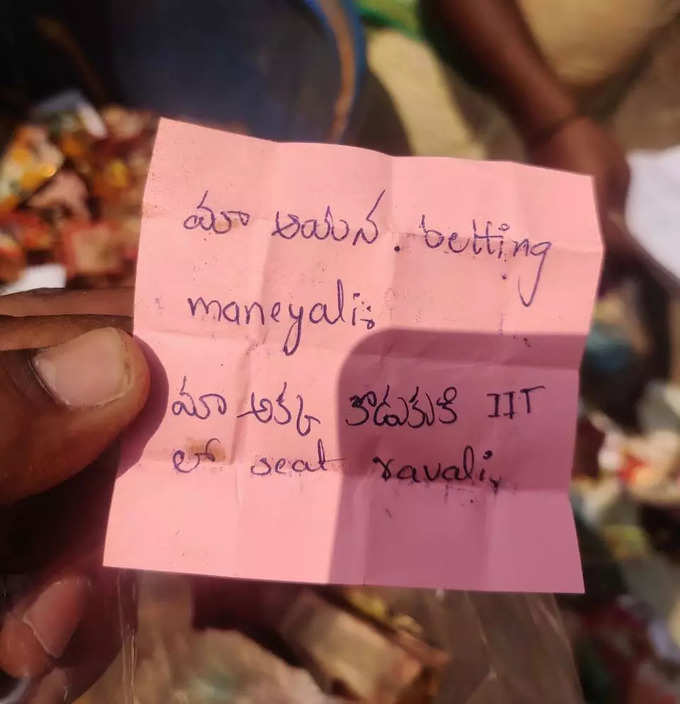 మా ఆయన. betting
maneyali;
మా అక్క కొడుకుకి IIT
లో seat ravali,